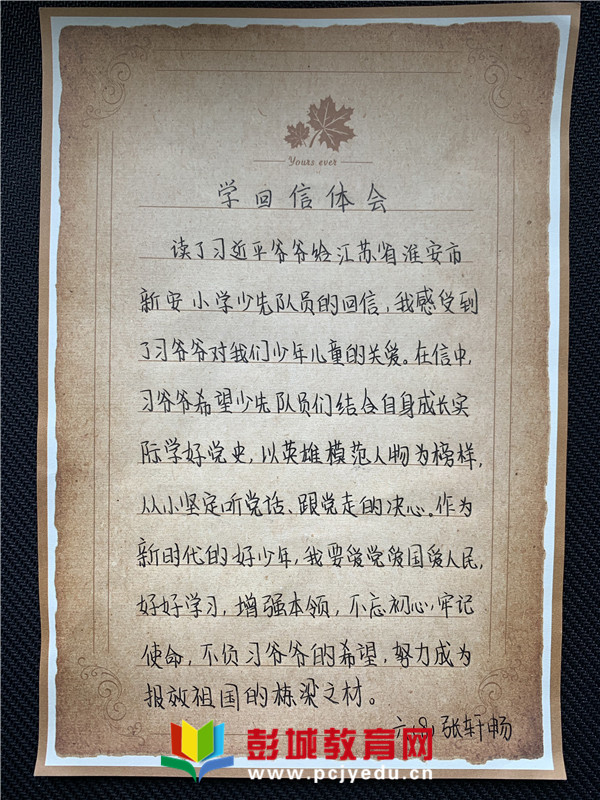 Yours ever
学回信体会
读了习近平爷爷给江苏省淮安市
新安小学少先队员的回信，我感受到
了习爷爷对我们少年儿童的关爱。在信中，
习爷爷希望少先队员们结合自身成长实
际学好党史，以英雄模范人物为榜样，
从小坚定听党话、跟党走的决心。作为
新时代的好少年，我要爱党爱国爱人民，
好好学习，增强本领，不忘初心，牢记
使命，不负习爷爷的希望，努力成为
报效祖国的栋梁之材。
张轩畅
彭城教育网
www.pcjyedu.cn